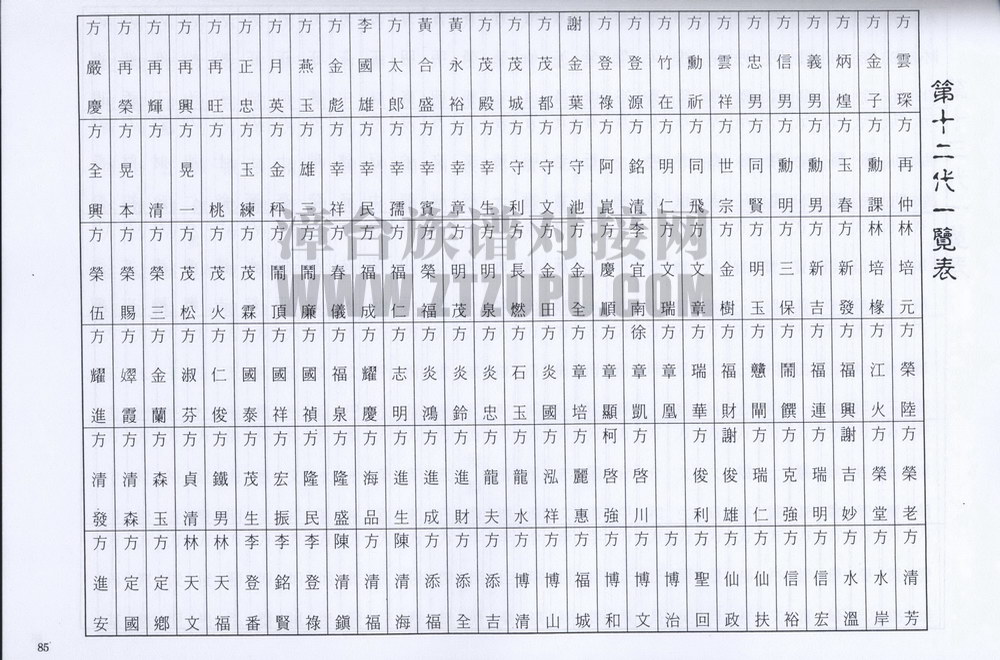 第十二代一覽表
方雲琛 方金子 方炳煌 方義男 方信男 方忠男 方雲祥 方勳祈 方竹在 方登源 方登祿 謝金葉 方茂都 方茂城 方茂殿 黃永裕 黃合盛 方太郎 李國雄 方金彪 方燕玉 方月英 方正忠 方再旺 方再興 方再輝 方再榮 方嚴慶
方再仲 方勳課 方玉春 方勳男 方勳明 方同賢 方世宗 方同飛 方明仁 方銘清 方阿崑 方守池 方守文 方守利 方幸生 方幸章 方幸賓 方幸孺 方幸民 方幸祥 方雄三 方金秤 方玉練 方桃 方晃一 方清 方晃本 方全興
林培元 林培椽 方新發 方新吉 方三保 方明玉 方金樹 方文章 方文瑞 李宜南 方慶順 方金全 方金田 方長燃 方明泉 方明茂 方榮福 方福仁 方福成 方春儀 方鬧廉 方鬧頂 方茂霖 方茂火 方茂松 方榮三 方榮賜 方榮伍
方榮陸 方江火 方福興 方福連 方鬧饌 方福財 方瑞華 方章凰 徐章凱 方章顯 方章培 方炎國 方石玉 方炎忠 方炎鈴 方炎鴻 方志明 方耀慶 方福泉 方國禎 方國祥 方國泰 方仁俊 方淑芬 方金蘭 方耀進
方榮老 方榮堂 謝吉妙 方瑞明 方克強 方瑞仁 謝俊雄 方俊利 方啓川 柯啓強 方麗惠 方泓祥 方龍水 方龍夫 方進財 方進成 方進生 方海品 方隆盛 方隆民 方宏振 方茂生 方鐵男 方貞清 方森玉 方清森 方清發
方清芳 方水岸 方水溫 方信宏 方信裕 方仙扶 方仙政 方聖回 方博治 方博文 方博和 方福城 方博山 方博清 方添吉 方添全 方添福 陳清海 方清福 陳清鎮 李登祿 李銘賢 李登番 林天福 林天文 方定鄉 方定國 方進安
漳台族谱对接网
WWW.ZTZUPU.COM
85